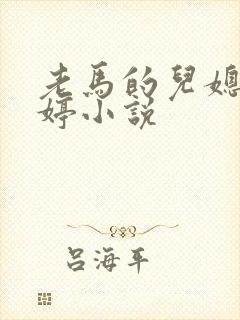 老馬的兒媳
婷小說
呂海平